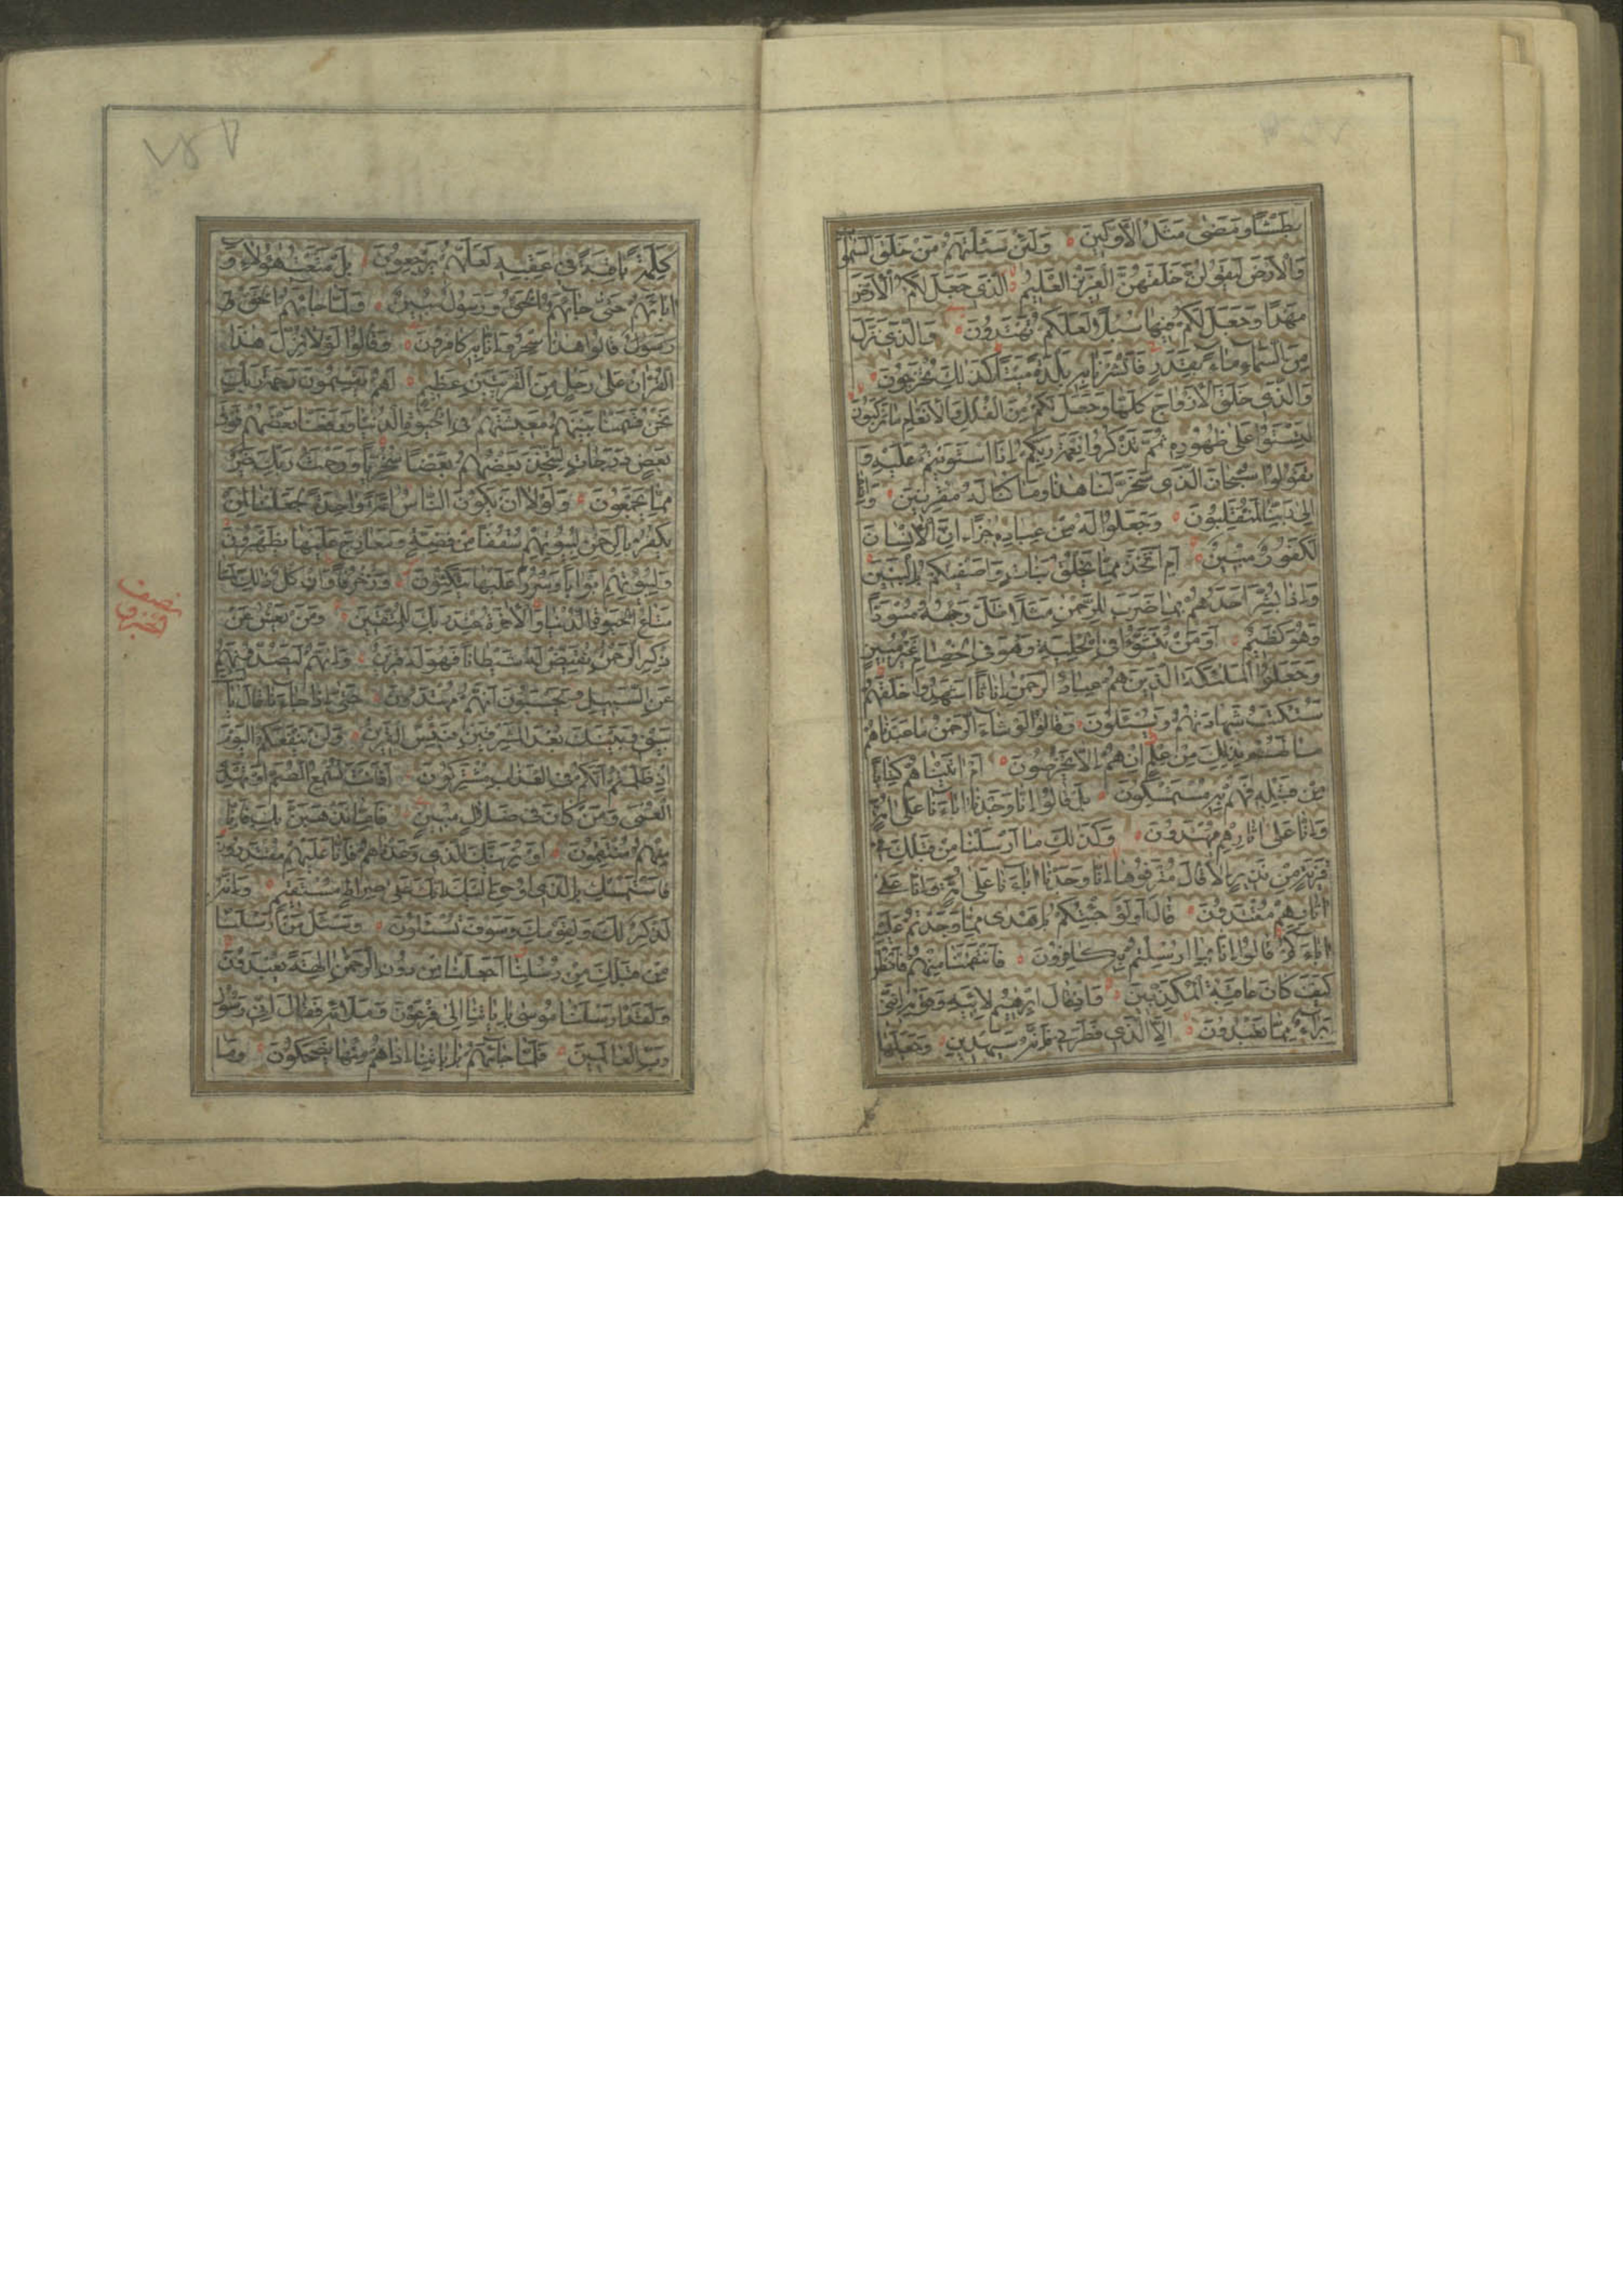 بَطْشًا وَمَضٰى مَثَلُ الْاَوَّلينَ وَلَئِنْ سَئَلْتَهُمْ مَنْ خَلَقَ السَّمٰوٰاتِ
وَالْاَرْضَ لَيَقُولُنَّ خَلَقَهُنَّ الْعَزيزُ الْعَليمُ الَّذي جَعَلَ لَكُمُ الْاَرْضَ
مَهْدًا وَجَعَلَ لَكُمْ فيهٰا سُبُلًا لَعَلَّكُمْ تَهْتَدُونَ وَالَّذي نَزَّلَ
مِنَ السَّمٰاءِ مٰاءً بِقَدَرٍ فَاَنْشَرْنٰا بِهِ بَلْدَةً مَيْتًا كَذٰلِكَ تُخْرَجُونَ
وَالَّذي خَلَقَ الْاَزْوٰاجَ كُلَّهٰا وَجَعَلَ لَكُمْ مِنَ الْفُلْكِ وَالْاَنْعٰامِ مٰا تَرْكَبُونَ
لِتَسْتَوُوا عَلٰى ظُهُورِهِ ثُمَّ تَذْكُرُوا نِعْمَةَ رَبِّكُمْ اِذَا اسْتَوَيْتُمْ عَلَيْهِ وَ
تَقُولُوا سُبْحٰانَ الَّذي سَخَّرَ لَنٰا هٰذٰا وَمٰا كُنّٰا لَهُ مُقْرِنينَ وَاِنّٰا
اِلٰى رَبِّنٰا لَمُنْقَلِبُونَ وَجَعَلُوا لَهُ مِنْ عِبٰادِهِ جُزْءًا اِنَّ الْاِنْسٰانَ
لَكَفُورٌ مُبينٌ اَمِ اتَّخَذَ مِمّٰا يَخْلُقُ بَنٰاتٍ وَاَصْفٰيكُمْ بِالْبَنينَ
وَاِذٰا بُشِّرَ اَحَدُهُمْ بِمٰا ضَرَبَ لِلرَّحْمٰنِ مَثَلًا ظَلَّ وَجْهُهُ مُسْوَدًّا
وَهُوَ كَظيمٌ اَوَمَنْ يُنَشَّؤُا فِي الْحِلْيَةِ وَهُوَ فِي الْخِصٰامِ غَيْرُ مُبينٍ
وَجَعَلُوا الْمَلٰئِكَةَ الَّذينَ هُمْ عِبٰادُ الرَّحْمٰنِ اِنٰاثًا اَشَهِدُوا خَلْقَهُمْ
سَتُكْتَبُ شَهٰادَتُهُمْ وَيُسْئَلُونَ وَقٰالُوا لَوْ شٰاءَ الرَّحْمٰنُ مٰا عَبَدْنٰاهُمْ
مٰا لَهُمْ بِذٰلِكَ مِنْ عِلْمٍ اِنْ هُمْ اِلّٰا يَخْرُصُونَ اَمْ اٰتَيْنٰاهُمْ كِتٰابًا
مِنْ قَبْلِهِ فَهُمْ بِهِ مُسْتَمْسِكُونَ بَلْ قٰالُوا اِنّٰا وَجَدْنٰا اٰبٰاءَنٰا عَلٰى اُمَّةٍ
وَاِنّٰا عَلٰى اٰثٰارِهِمْ مُهْتَدُونَ وَكَذٰلِكَ مٰا اَرْسَلْنٰا مِنْ قَبْلِكَ في
قَرْيَةٍ مِنْ نَذيرٍ اِلّٰا قٰالَ مُتْرَفُوهٰا اِنّٰا وَجَدْنٰا اٰبٰاءَنٰا عَلٰى اُمَّةٍ وَاِنّٰا عَلٰى
اٰثٰارِهِمْ مُقْتَدُونَ قٰالَ اَوَلَوْ جِئْتُكُمْ بِاَهْدٰى مِمّٰا وَجَدْتُمْ عَلَيْهِ
اٰبٰاءَكُمْ قٰالُوا اِنّٰا بِمٰا اُرْسِلْتُمْ بِهِ كٰافِرُونَ فَانْتَقَمْنٰا مِنْهُمْ فَانْظُرْ
كَيْفَ كٰانَ عٰاقِبَةُ الْمُكَذِّبينَ وَاِذْ قٰالَ اِبْرٰهيمُ لِاَبيهِ وَقَوْمِهِ اِنَّني
بَرٰاءٌ مِمّٰا تَعْبُدُونَ اِلَّا الَّذي فَطَرَني فَاِنَّهُ سَيَهْدينِ وَجَعَلَهٰا
كَلِمَةً بٰاقِيَةً في عَقِبِهِ لَعَلَّهُمْ يَرْجِعُونَ بَلْ مَتَّعْتُ هٰؤُلٰاءِ وَ
اٰبٰاءَهُمْ حَتّٰى جٰاءَهُمُ الْحَقُّ وَرَسُولٌ مُبينٌ وَلَمّٰا جٰاءَهُمُ الْحَقُّ وَ
رَسُولٌ قٰالُوا هٰذٰا سِحْرٌ وَاِنّٰا بِهِ كٰافِرُونَ وَقٰالُوا لَوْلٰا نُزِّلَ هٰذَا
الْقُرْاٰنُ عَلٰى رَجُلٍ مِنَ الْقَرْيَتَيْنِ عَظيمٍ اَهُمْ يَقْسِمُونَ رَحْمَةَ رَبِّكَ
نَحْنُ قَسَمْنٰا بَيْنَهُمْ مَعيشَتَهُمْ فِي الْحَيٰوةِ الدُّنْيٰا وَرَفَعْنٰا بَعْضَهُمْ فَوْقَ
بَعْضٍ دَرَجٰاتٍ لِيَتَّخِذَ بَعْضُهُمْ بَعْضًا سُخْرِيًّا وَرَحْمَتُ رَبِّكَ خَيْرٌ
مِمّٰا يَجْمَعُونَ وَلَوْلٰا اَنْ يَكُونَ النّٰاسُ اُمَّةً وٰاحِدَةً لَجَعَلْنٰا لِمَنْ
يَكْفُرُ بِالرَّحْمٰنِ لِبُيُوتِهِمْ سُقُفًا مِنْ فِضَّةٍ وَمَعٰارِجَ عَلَيْهٰا يَظْهَرُونَ
وَلِبُيُوتِهِمْ اَبْوٰابًا وَسُرُرًا عَلَيْهٰا يَتَّكِؤُنَ وَزُخْرُفًا وَاِنْ كُلُّ ذٰلِكَ لَمّٰا
مَتٰاعُ الْحَيٰوةِ الدُّنْيٰا وَالْاٰخِرَةُ عِنْدَ رَبِّكَ لِلْمُتَّقينَ وَمَنْ يَعْشُ عَنْ
ذِكْرِ الرَّحْمٰنِ نُقَيِّضْ لَهُ شَيْطٰانًا فَهُوَ لَهُ قَرينٌ وَاِنَّهُمْ لَيَصُدُّونَهُمْ
عَنِ السَّبيلِ وَيَحْسَبُونَ اَنَّهُمْ مُهْتَدُونَ حَتّٰى اِذٰا جٰاءَنٰا قٰالَ يٰا
لَيْتَ بَيْني وَبَيْنَكَ بُعْدَ الْمَشْرِقَيْنِ فَبِئْسَ الْقَرينُ وَلَنْ يَنْفَعَكُمُ الْيَوْمَ
اِذْ ظَلَمْتُمْ اَنَّكُمْ فِي الْعَذٰابِ مُشْتَرِكُونَ اَفَاَنْتَ تُسْمِعُ الصُّمَّ اَوْ تَهْدِي
الْعُمْيَ وَمَنْ كٰانَ في ضَلٰالٍ مُبينٍ فَاِمّٰا نَذْهَبَنَّ بِكَ فَاِنّٰا
مِنْهُمْ مُنْتَقِمُونَ اَوْ نُرِيَنَّكَ الَّذي وَعَدْنٰاهُمْ فَاِنّٰا عَلَيْهِمْ مُقْتَدِرُونَ
فَاسْتَمْسِكْ بِالَّذي اُوحِيَ اِلَيْكَ اِنَّكَ عَلٰى صِرٰاطٍ مُسْتَقيمٍ وَاِنَّهُ
لَذِكْرٌ لَكَ وَلِقَوْمِكَ وَسَوْفَ تُسْئَلُونَ وَسْئَلْ مَنْ اَرْسَلْنٰا
مِنْ قَبْلِكَ مِنْ رُسُلِنٰا اَجَعَلْنٰا مِنْ دُونِ الرَّحْمٰنِ اٰلِهَةً يُعْبَدُونَ
وَلَقَدْ اَرْسَلْنٰا مُوسٰى بِاٰيٰاتِنٰا اِلٰى فِرْعَوْنَ وَمَلَائِهِ فَقٰالَ اِنّي رَسُولُ
رَبِّ الْعٰالَمينَ فَلَمّٰا جٰاءَهُمْ بِاٰيٰاتِنٰا اِذٰا هُمْ مِنْهٰا يَضْحَكُونَ وَمٰا
نصف